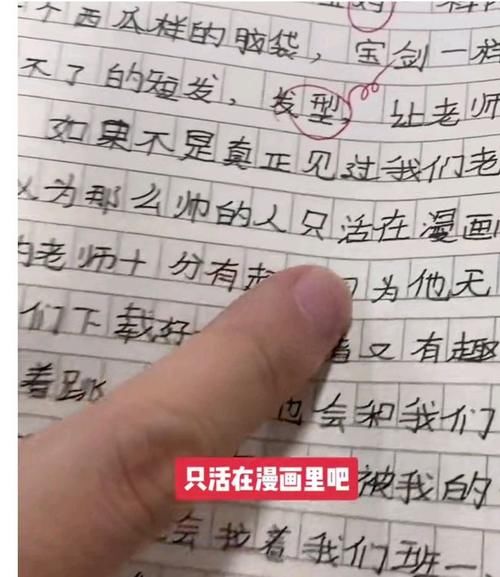 个西瓜样的脑袋，宝剑一样
不了的短发，发型，让老师
如果不是真正见过我们老
以为那么帅的人只活在漫画
的老师十分有趣 为他天
们下载好 又有趣
着跳 也会和我们
只活在漫画里吧
被我的
会拉着我们班一